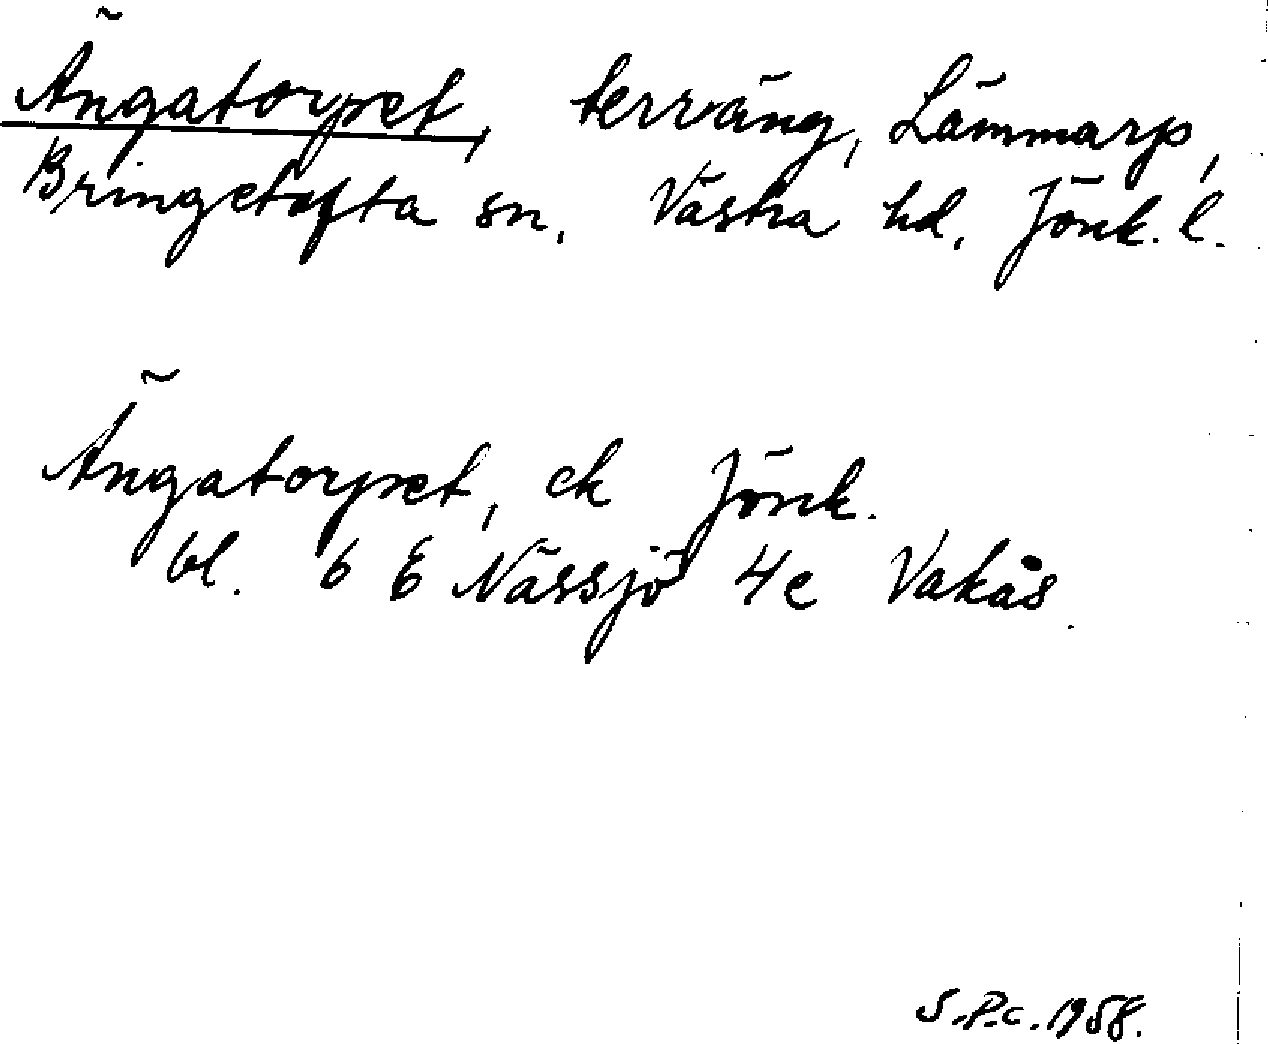 Ängatorpet, terräng, Lämmarp,
Bringetofta sn. Västra hd. Jönk. l.
Ängatorpet, ek Jönk.
bl. 6 E Nässjö 4e Vakås.
S.P.C. 1958.